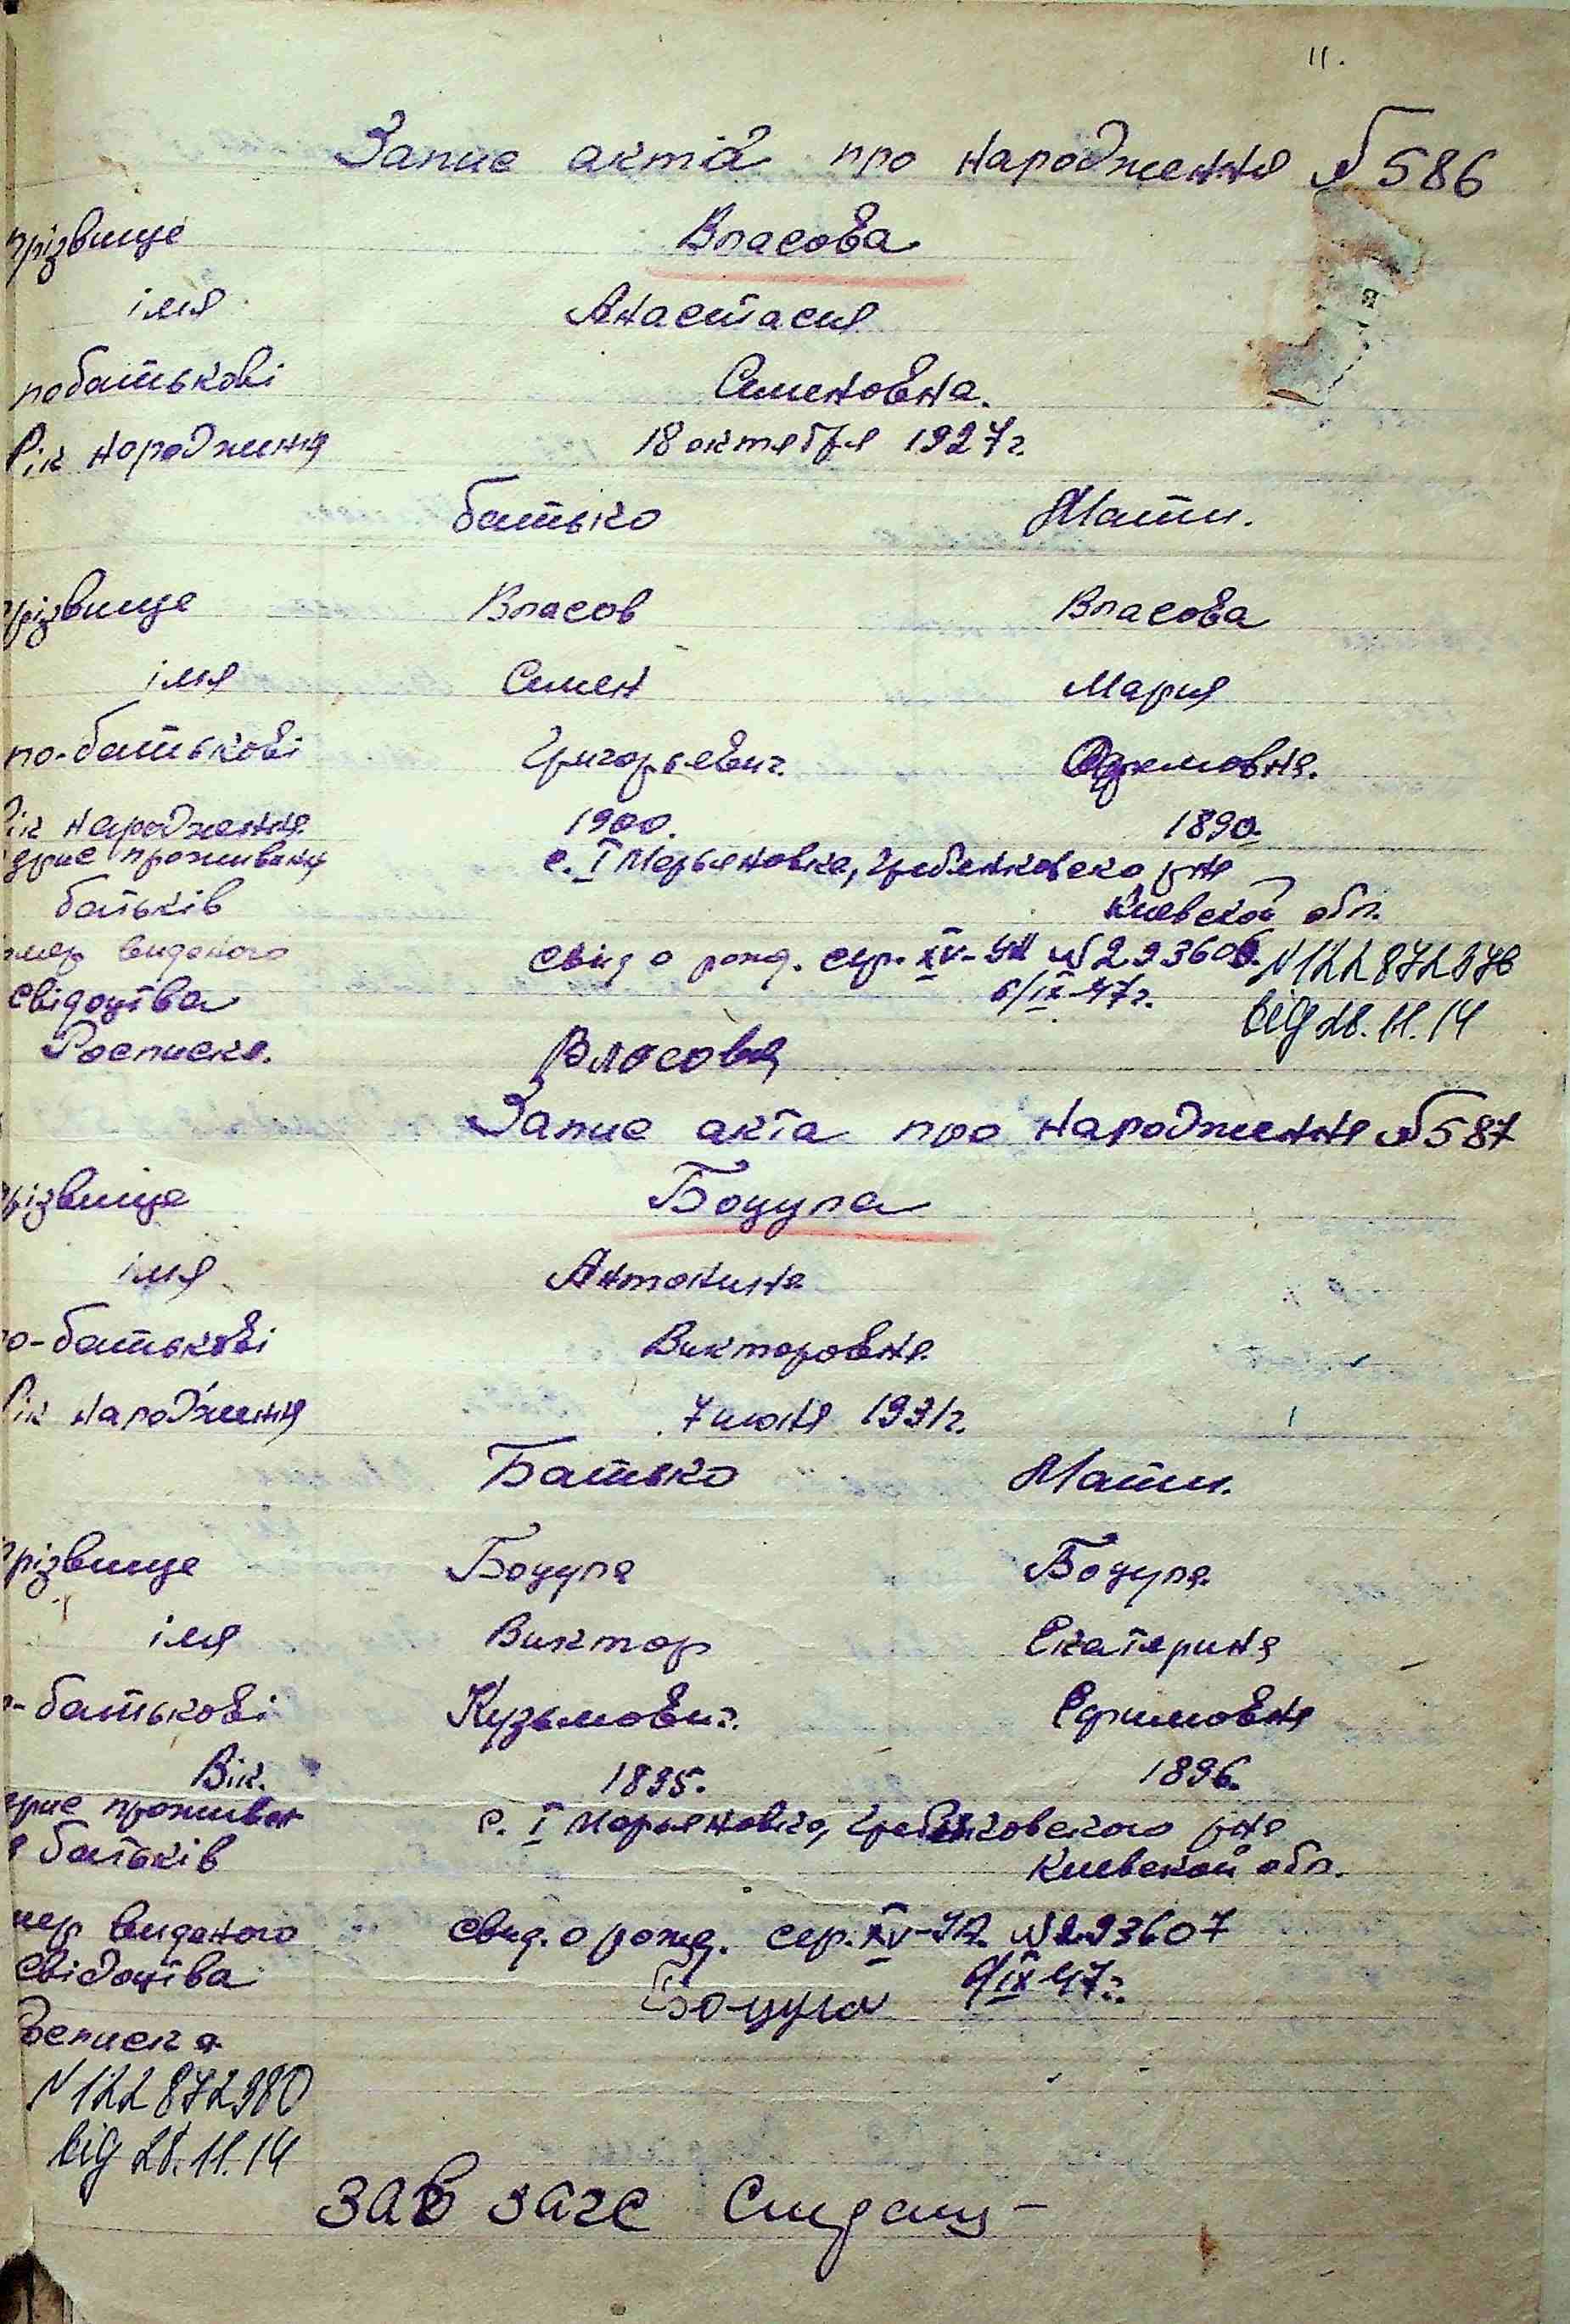 11.
Запис актів про народження №586
прізвище Власова
імя Анастасия
побатькові Семеновна.
Рік народження 18 октября 1927г.
батько Мати.
прізвище Власов Власова
імя Семен Мария
по-батькові Григорьевич. Ефремовна.
Рік народження 1900. 1890.
проживання с. I Марьяновка, Гребенковско р-на
батьків Киевской обл.
номер виданого свид о рожд. сер. XV-УА №293606. №122872978
свідоцтва 6/IX-47г. від 28.11.14
Росписка. Власова
Запис акта про народження №587
прізвище Боцула
імя Антонина
по-батькові Викторовна.
Рік народження 7 июня 1931г.
Батько Мати.
прізвище Боцула Боцула.
імя Виктор Екатерина
по-батькові Кузьмович. Ефимовна
Вік. 1895. 1896.
проживан с. I Марьяновка, Гребенковского р-на
я батьків Киевской обл.
номер виданого свид. о рожд. сер. XV-УА. №293607
свідоцтва 6/IX-47г.
Росписка Боцула
№122872980
від 28.11.14
зав загс